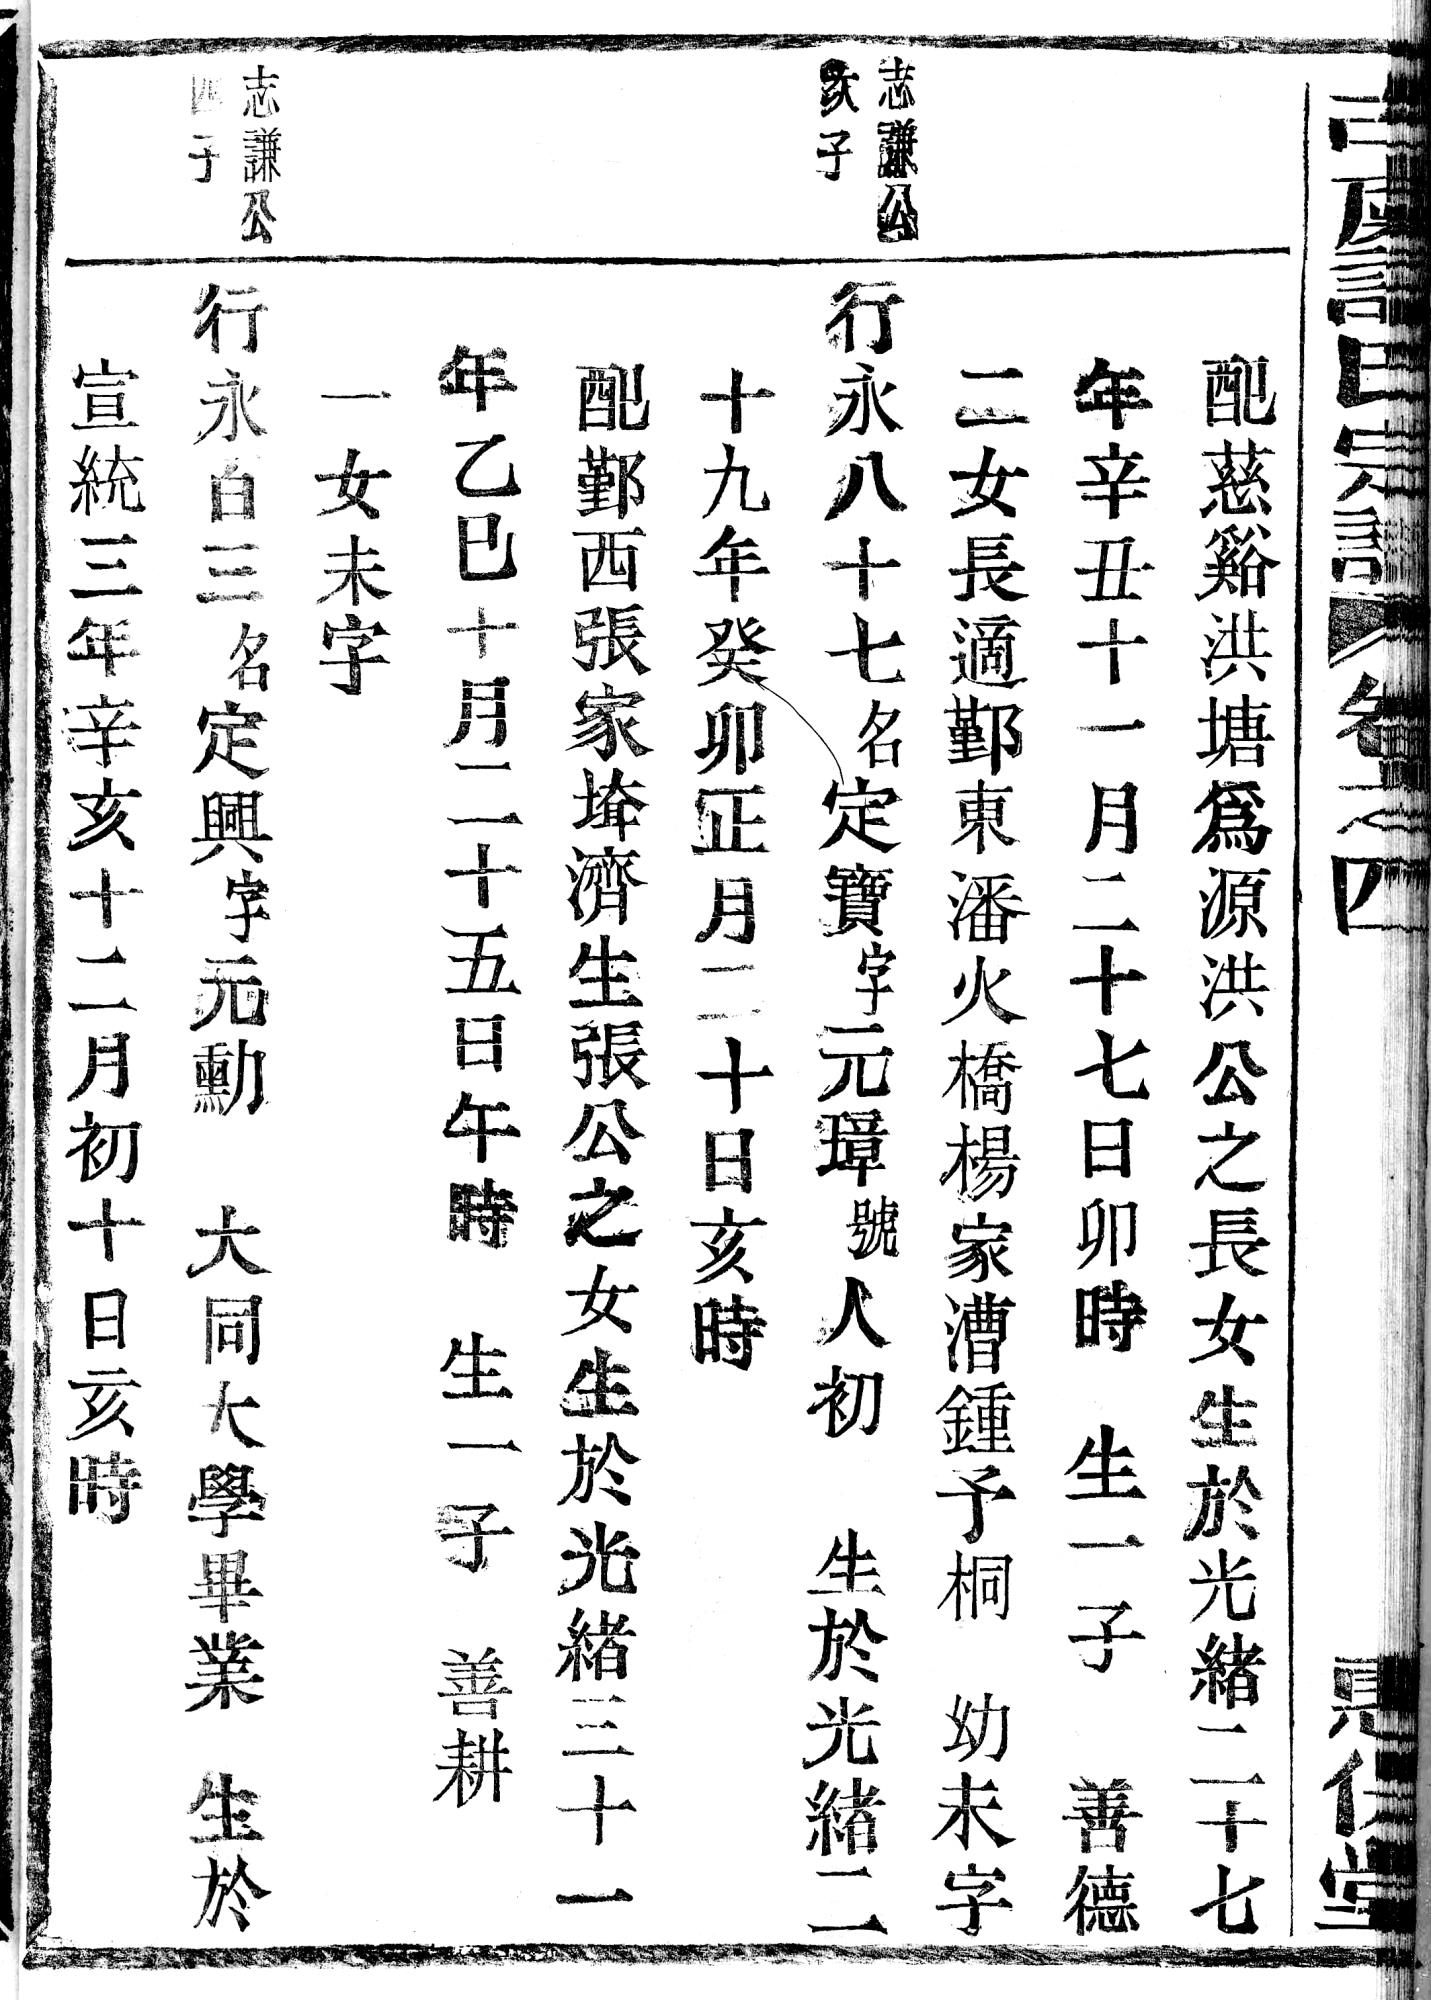 宗譜 卷之四
配慈谿洪塘為源洪公之長女生於光緒二十七
年辛丑十一月二十七日卯時 生一子 善德
二女長適鄞東潘火橋楊家漕鍾予桐 幼未字
志謙公
次子
行永八十七名定寶字元璋號人初 生於光緒二
十九年癸卯正月二十日亥時
配鄞西張家垮濟生張公之女生於光緒三十一
年乙巳十月二十五日午時 生一子 善耕
一女未字
志謙公
四子
行永百三名定興字元勳 大同大學畢業 生於
宣統三年辛亥十二月初十日亥時